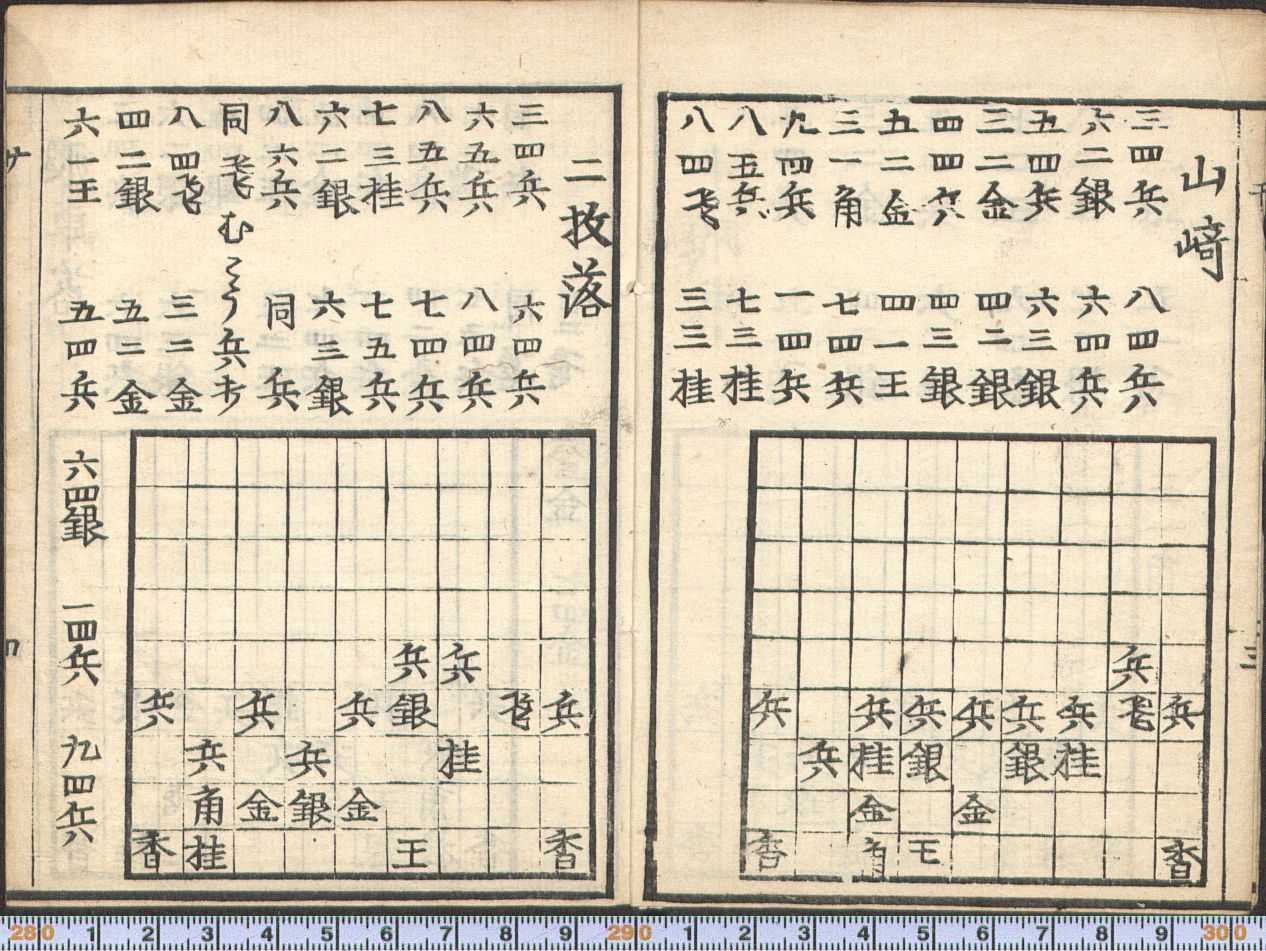 山﨑
三四兵 八四兵
六二銀 六四兵
五四兵 六三銀
三二金 四二銀
四四兵 四三銀
五二金 四一王
三一角 七四兵
九四兵 一四兵
八五兵 七三桂
八四飛 三三桂
兵
兵 兵 兵 兵 兵 兵 飛 兵
兵 桂 銀 銀 桂
金 金
香 角 王 香
三
二枚落
三四兵 六四兵
六五兵 八四兵
八五兵 七四兵
七三桂 七五兵
六二銀 六三銀
八六兵 同 兵
同飛むかう兵打
八四飛 三二金
四二銀 五二金
六一王 五四兵
六四銀 一四兵 九四兵
兵 兵
兵 兵 兵 銀 飛 兵
兵 兵 桂
角 金 銀 金
香 桂 王 香
280 1 2 3 4 5 6 7 8 9 290 1 2 3 4 5 6 7 8 9 300